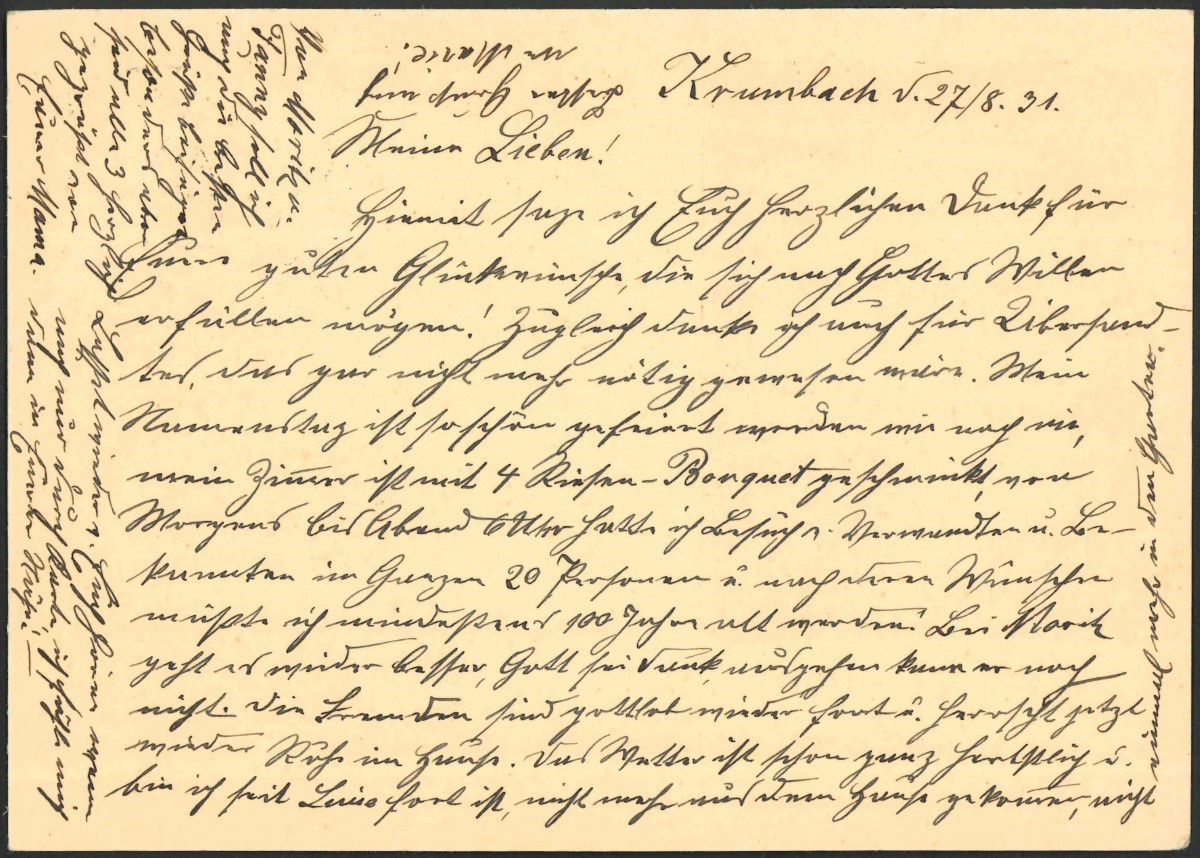 Krumbach d. 27/8. 31.
Meine Lieben!
Hiemit sage ich Euch herzlichen Dank für
Eure guten Glückwünsche, die sich nach Gottes Willen
erfüllen mögen! Zugleich danke ich auch für Übersand-
tes, das gar nicht mehr nötig gewesen wäre. Mein
Namenstag ist so schön gefeiert worden wie noch nie,
mein Zimmer ist mit 4 Riesen-Bouquet geschmückt, von
Morgens bis Abend 6 Uhr hatte ich Besuch v. Verwandten u. Be-
kannten im Ganzen 20 Personen u. nach deren Wünschen
müßte ich mindestens 100 Jahre alt werden! Bei Moritz
geht es wieder besser, Gott sei Dank, ausgehen kann er noch
nicht. Die Fremden sind gottlob wieder fort u. herrscht jetzt
wieder Ruhe im Hause. Das Wetter ist schon ganz herbstlich u.
bin ich seit Luise fort ist, nicht mehr aus dem Hause gekommen, nicht
einmal mehr in den Garten.
Laßt wieder v. Euch hören wenn
auch nur durch Karte, ich fühle mich
dann in Eurer Nähe.
Von Moritz u.
Fanny soll ich
nur die besten
Grüße beifügen
besonders aber
seid alle 3 herzlich
gegrüßt von
Eurer Mama.